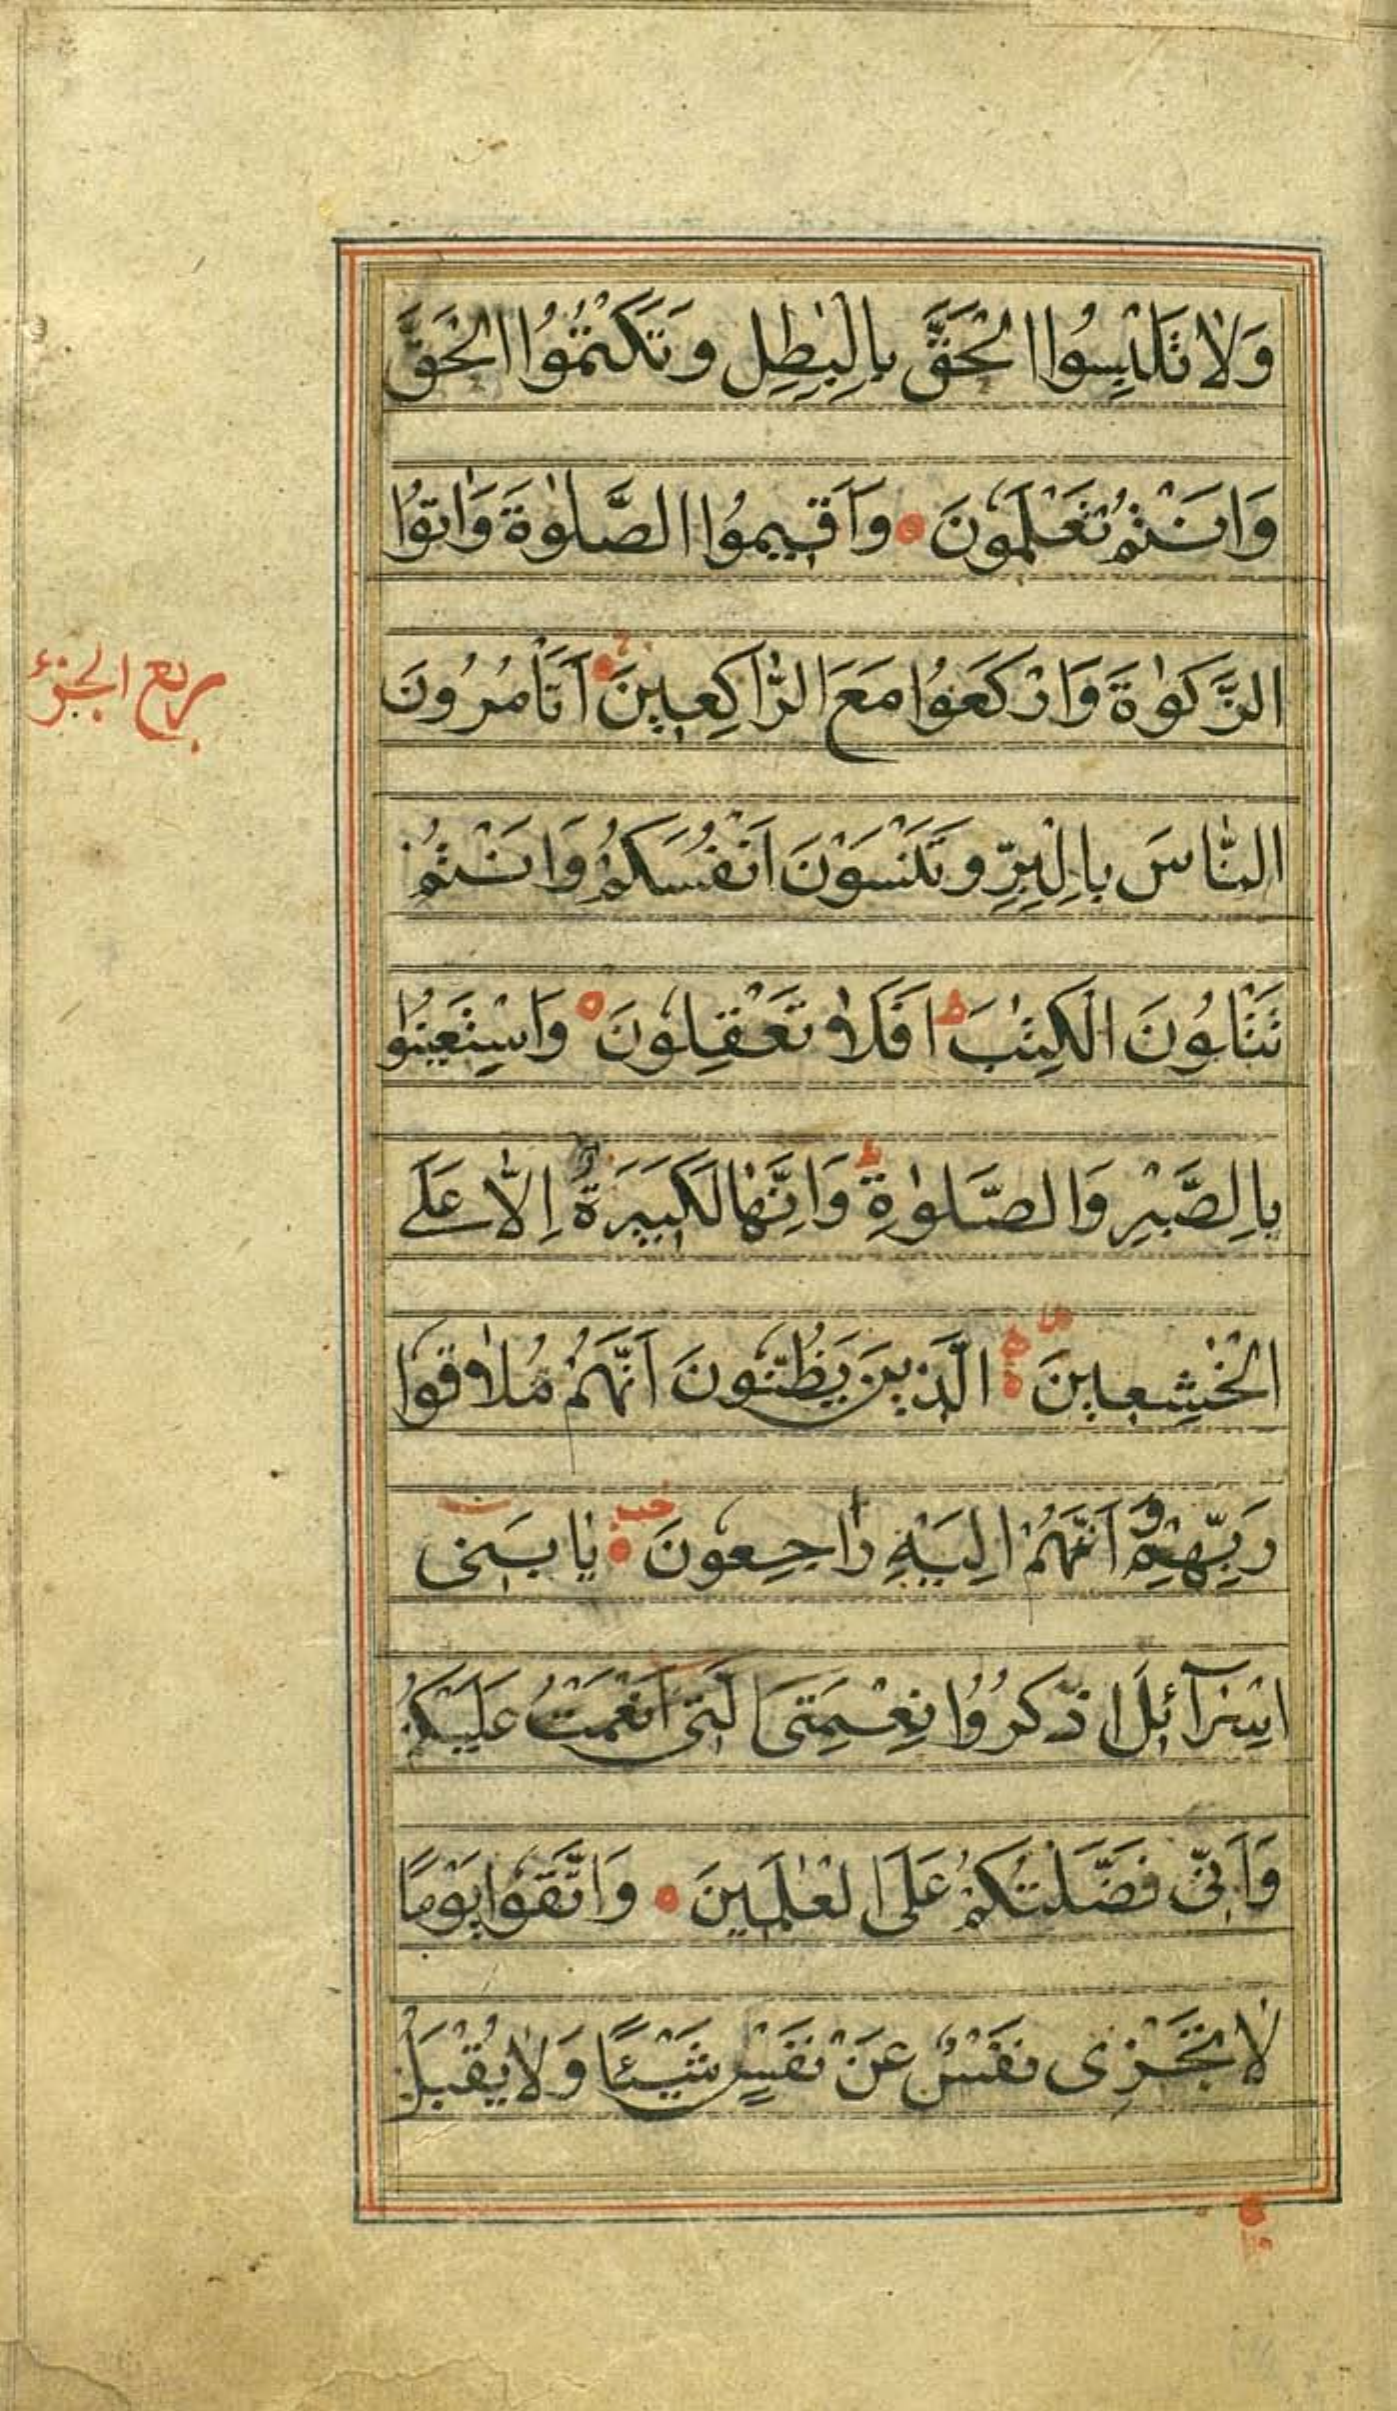 وَلَا تَلْبِسُوا الْحَقَّ بِالْبٰطِلِ وَتَكْتُمُوا الْحَقَّ
وَاَنْتُمْ تَعْلَمُونَ وَاَقٖيمُوا الصَّلٰوةَ وَاٰتُوا
الزَّكٰوةَ وَارْكَعُوا مَعَ الرَّاكِعٖينَ اَتَأْمُرُونَ
ربع الجزء
النَّاسَ بِالْبِرِّ وَتَنْسَوْنَ اَنْفُسَكُمْ وَاَنْتُمْ
تَتْلُونَ الْكِتٰبَ اَفَلَا تَعْقِلُونَ وَاسْتَعٖينُوا
بِالصَّبْرِ وَالصَّلٰوةِ ط وَاِنَّهَا لَكَبٖيرَةٌ اِلَّا عَلَى
الْخٰشِعٖينَ الَّذٖينَ يَظُنُّونَ اَنَّهُمْ مُلَاقُوا
رَبِّهِمْ وَاَنَّهُمْ اِلَيْهِ رَاجِعُونَ يَا بَنٖى
اِسْرَآئٖلَ اذْكُرُوا نِعْمَتِىَ الَّتٖى اَنْعَمْتُ عَلَيْكُمْ
وَاَنّٖى فَضَّلْتُكُمْ عَلَى الْعٰلَمٖينَ وَاتَّقُوا يَوْمًا
لَا تَجْزٖى نَفْسٌ عَنْ نَفْسٍ شَيْئًا وَلَا يُقْبَلُ